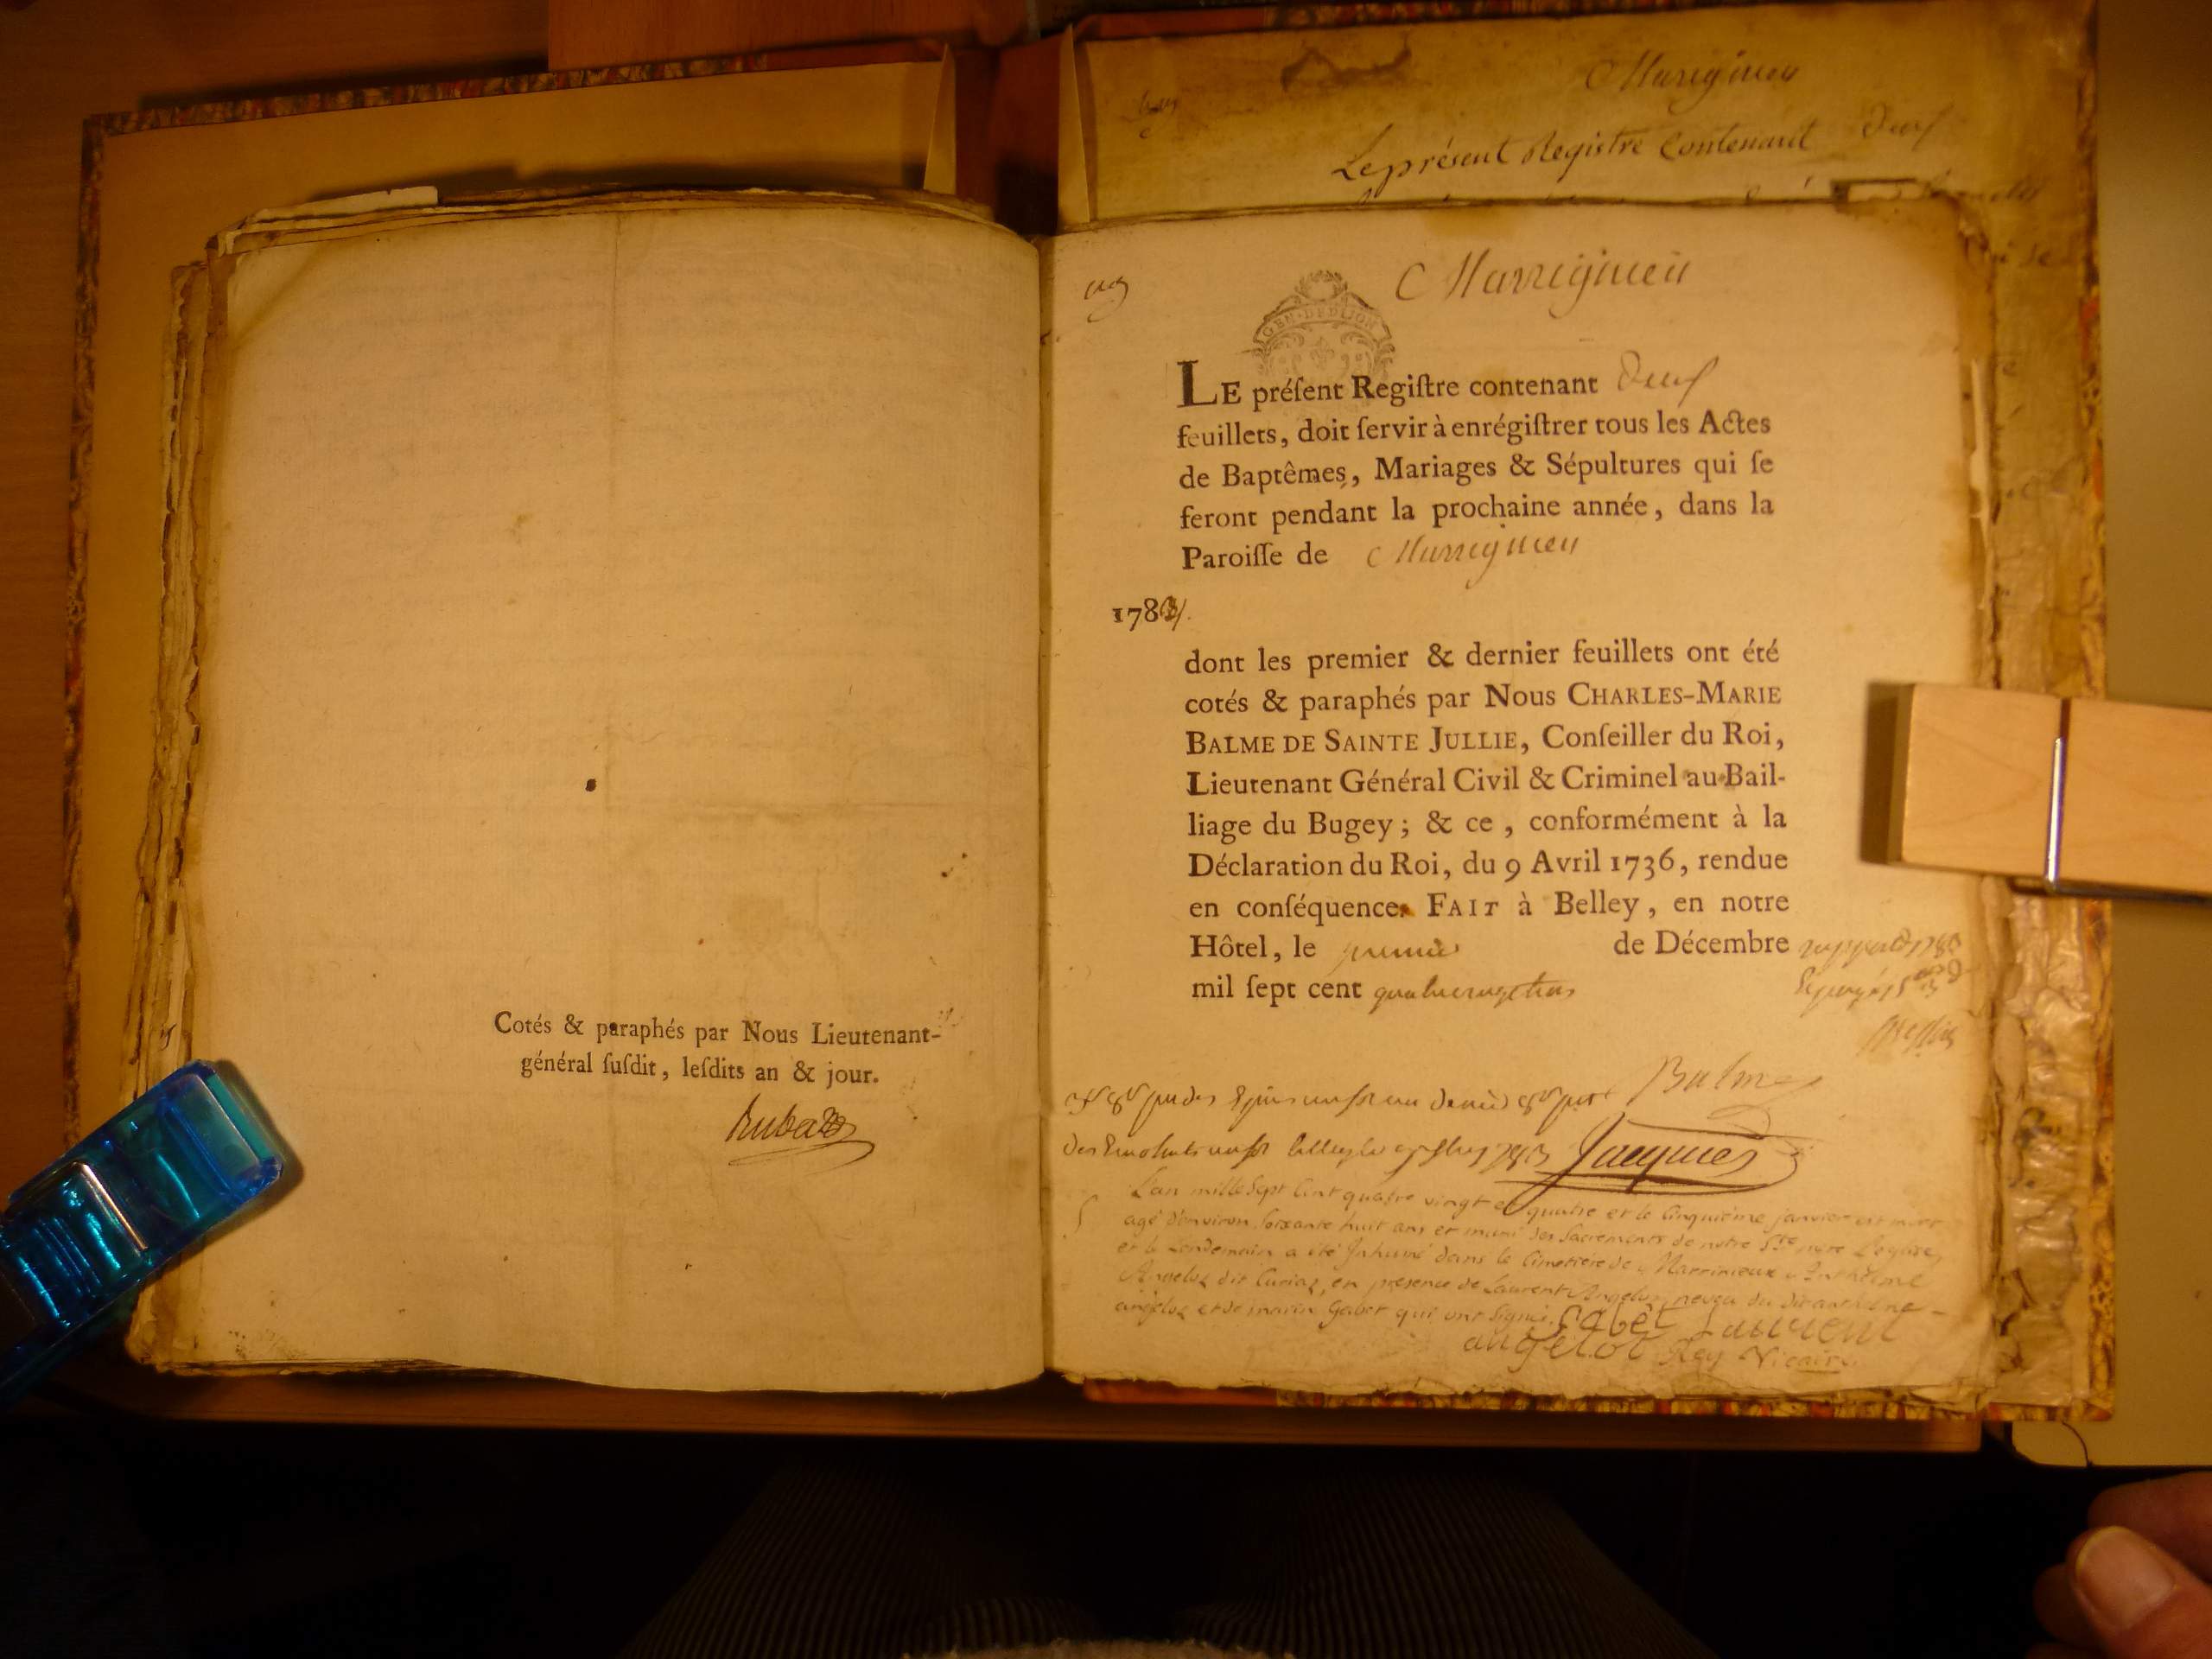 Cotés & paraphés par Nous Lieutenant-
général ſuſdit, leſdits an & jour.
Marrignieu
Le présent Registre Contenant Deux
Marrignieu
GEN·DE DIJON
LE préſent Regiſtre contenant Deux
feuillets, doit ſervir à enrégiſtrer tous les Actes
de Baptêmes, Mariages & Sépultures qui ſe
feront pendant la prochaine année, dans la
Paroiſſe de Marrignieu
1784.
dont les premier & dernier feuillets ont été
cotés & paraphés par Nous CHARLES-MARIE
BALME DE SAINTE JULLIE, Conſeiller du Roi,
Lieutenant Général Civil & Criminel au Bail-
liage du Bugey; & ce, conformément à la
Déclaration du Roi, du 9 Avril 1736, rendue
en conſéquence. FAIT à Belley, en notre
Hôtel, le premier de Décembre
mil ſept cent quatrevingttrois
Balme
Jacquier
L'an mille Sept Cent quatre vingt et quatre et le Cinquième janvier est mort
agé d'environ Soixante huit ans et muni des Sacrements de notre Ste mere L'eglise,
et le Lendemain a été Inhumé dans le Cimetière de Marrinieux Anthelme
Angeloz dit Curiaz, en présence de Laurent Angeloz neveu du dit anthelme
angeloz et de marin Gabet qui ont signé. Gabet Laurent
angelot Rey Vicaire